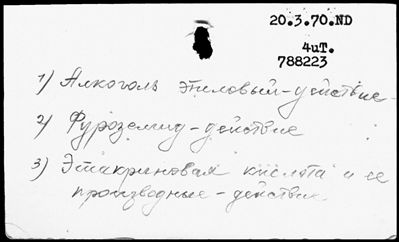 20.3.70.ND
4uT.
788223
1) Алкоголь этиловый-действие.
2) Фуроземид-действие
3) Этакриновая кислота и ее
производные-действие.